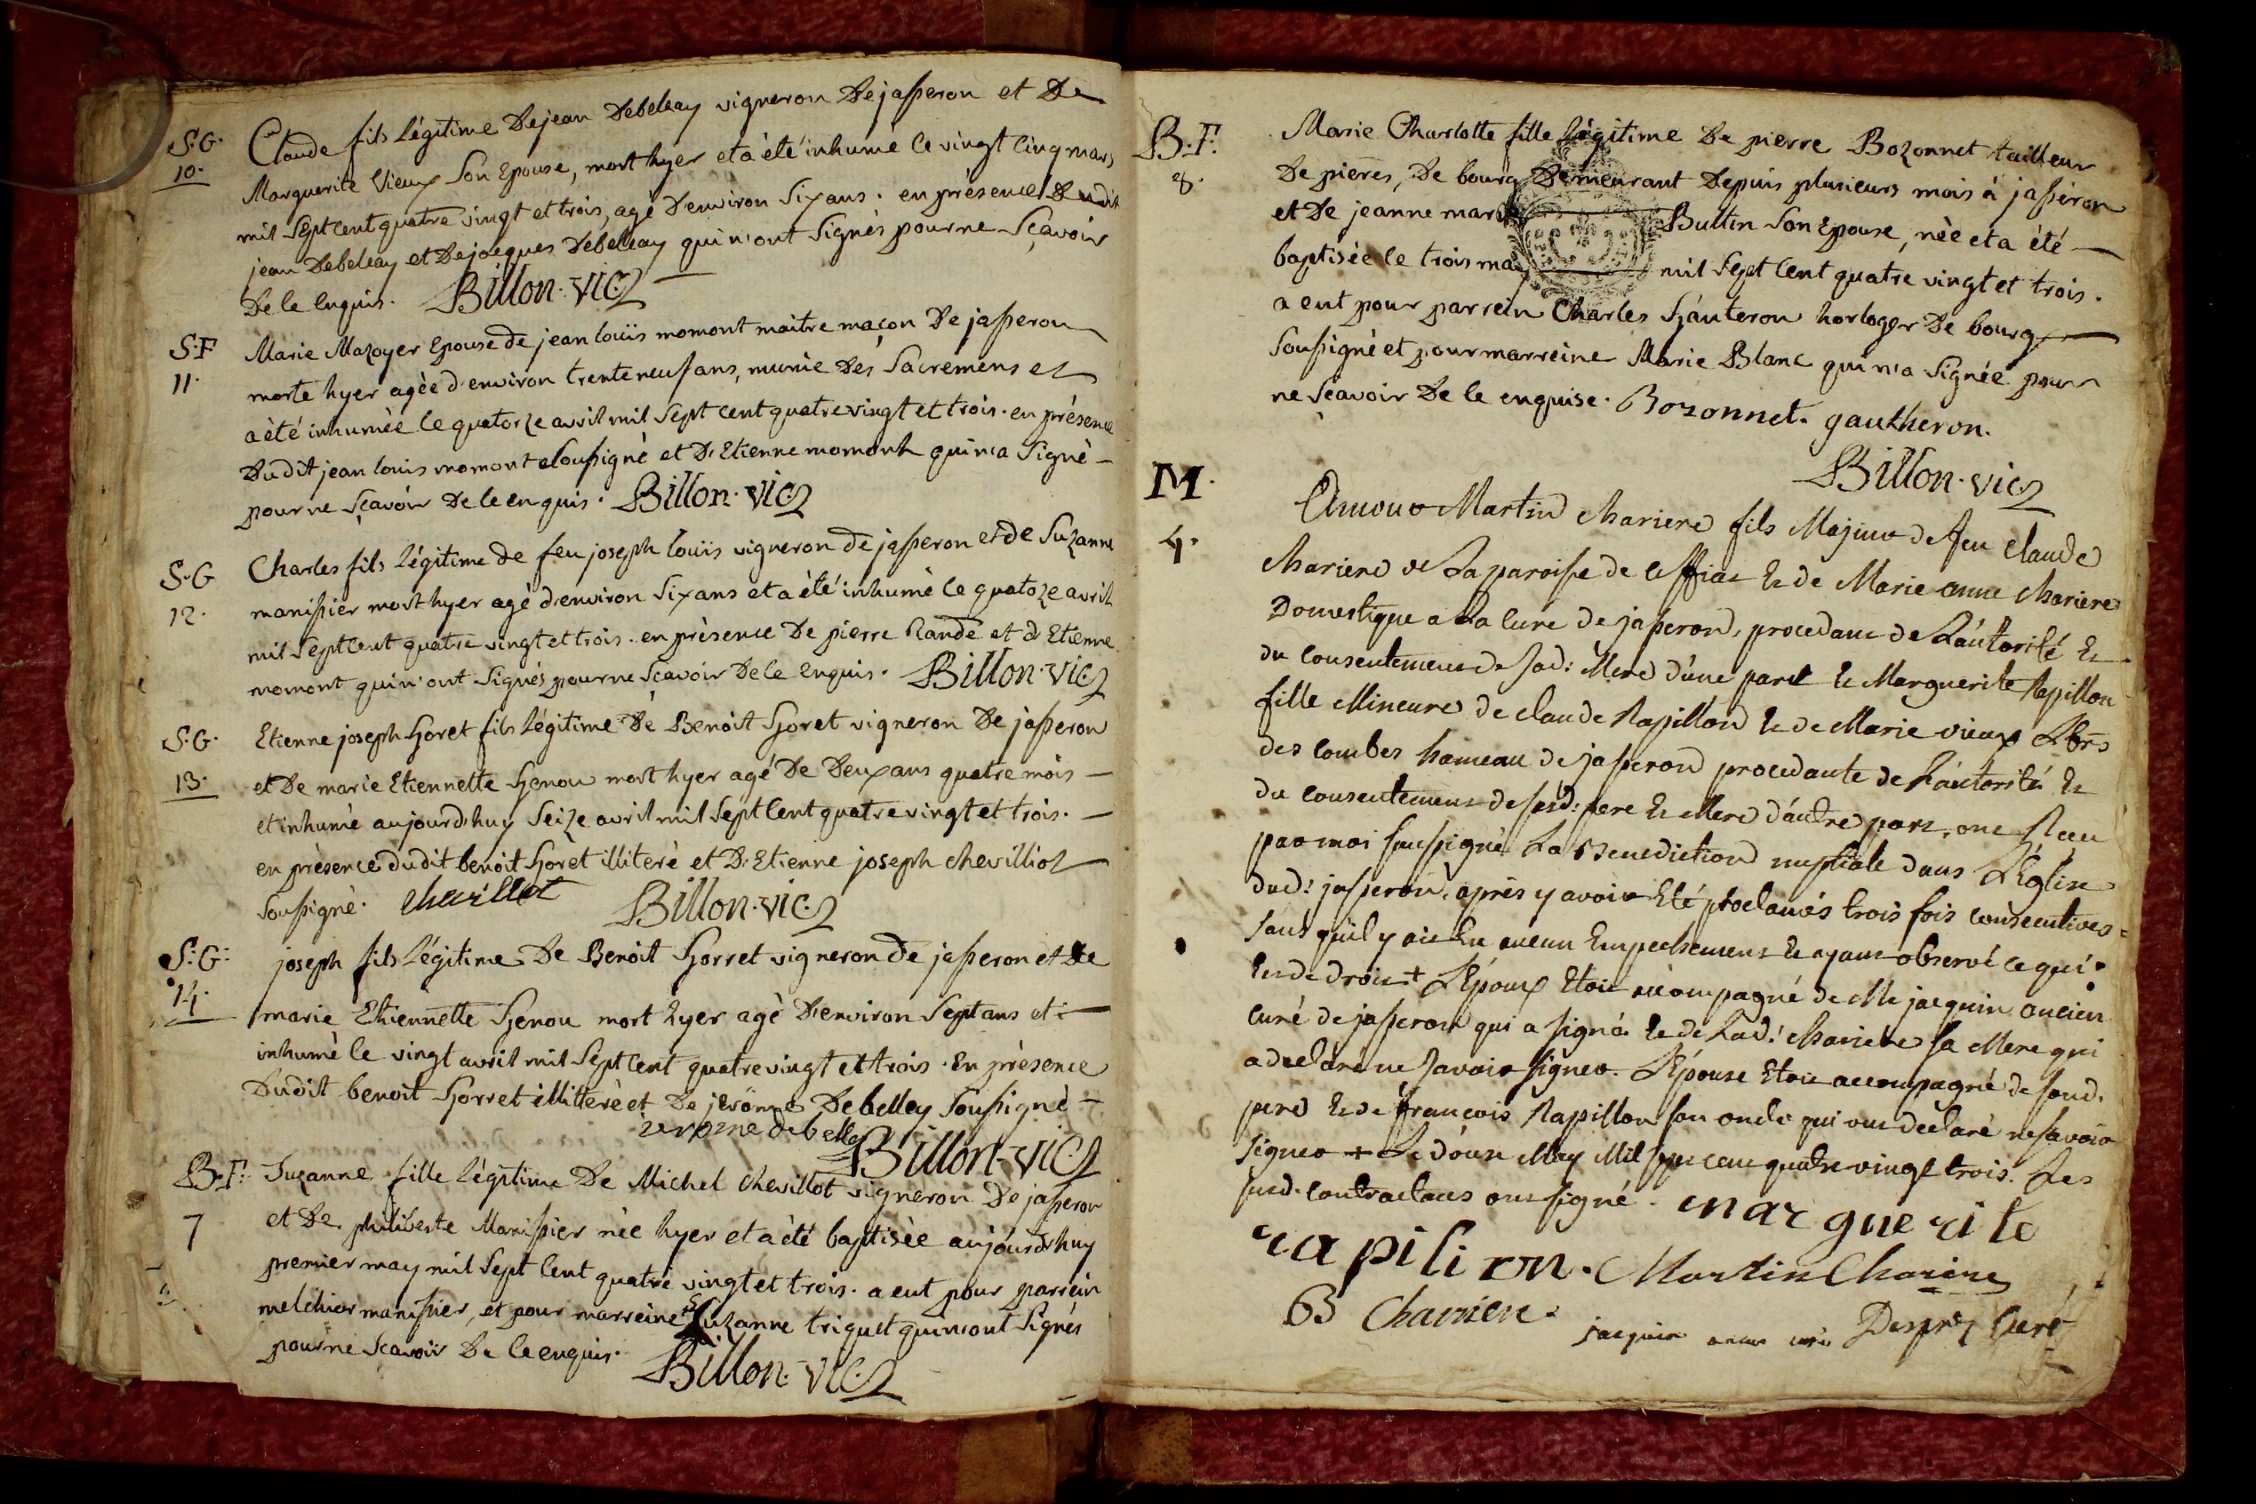 S.G.
10.
Claude fils légitime De jean Debeleay vigneron De jasseron et De
Marguerite Vieux Son Epouse, mort hyer et a été inhumé le vingt cinq mars
mil Sept cent quatre vingt et trois, agé d'environ Six ans. en présence Dudit
jean Debeleay et De jacques Debelleay qui n'ont Signés pour ne Sçavoir
De ce enquis. Billon. vic.
S.F
11.
Marie Mazoyer Epouse de jean louïs momont maitre maçon De jasseron
morte hyer agèe d'environ trente neuf ans, munie Des Sacremens et
a èté inhumèe le quatorze avril mil Sept cent quatre vingt et trois. en présence
Dudit jean louis momont Soussigné et D'Etienne momont qui n'a Signè
pour ne Sçavoir De ce enquis. Billon. vic.
S.G
12.
Charles fils légitime de feu joseph louïs vigneron de jasseron et de Suzanne
manissier mort hyer agè d'environ Six ans et a èté inhumè le quatoze avril
mil Sept Cent quatre vingt et trois. en prèsence De pierre Rande et d'Etienne
momont qui n'ont Signés pour ne Sçavoir De ce enquis. Billon. vic.
S.G.
13.
Etienne joseph Goret fils légitime De Benoit Goret vigneron De jasseron
et De marie Etiennette Genou mort hyer agé De Deux ans quatre mois
et inhumè aujourd'huy Seize avril mil Sept Cent quatre vingt et trois.
en prèsence dudit benoit Gorèt illiterè et D'Etienne joseph chevilliot
Soussigné. chevillot Billon. vic.
S.G.
14.
joseph fils légitime De Benoit Gorret vigneron De jasseron et De
marie Etiennette Genou mort hyer agè D'environ Sept ans et
inhumè le vingt avril mil Sept Cent quatre vingt et trois. En prèsence
Dudit benoit Gorret illitterè et De jerôme Debelley Soussignè
jerome debelley Billon. vic.
B.F.
7
Suzanne fille légitime De Michel chevillot vigneron De jasseron
et De philiberte Manissier nèe hyer et a èté baptisèe aujourd'huy
premier may mil Sept Cent quatre vingt et trois. a eut pour parrein
melchior manissier, et pour marreine Suzanne triquet qui n'ont Signés
pour ne Scavoir De ce enquis. Billon. vic.
B.F.
8.
Marie Charlotte fille légitime De pierre Bozonnet tailleur
De pieres, De bourg Demeurant Depuis plusieurs mois à jasseron
et De jeanne marie Bultin Son Epouse, nèe et a été
baptisèe le trois may mil Sept Cent quatre vingt et trois.
a eut pour parrein Charles Gauteron horloger De bourg
Soussigné et pour marreine Marie Blanc qui n'a Signée pour
ne Sçavoir De ce enquise. Bozonnet. gautheron.
Billon. vic.
M.
4.
Martin Chariere fils Majeur de feu Claude
Chariere de La paroisse de Ceffia et de Marie anne Chariere
Domestique a La cure de jasseron, procedant de L'autorité et
du consentement de sad: Mere d'une part et Marguerite Rapillon
fille Mineure de claude Rapillon et de Marie vieux Lbrs
des combes hameau de jasseron procedante de L'autorité et
du consentement de sesd: pere et Mere d'autre part, ont Recu
par moi soussigné La Benediction nuptiale dans L'Église
dud: jasseron, après y avoir Eté proclamés trois fois consecutives
sans qu'il y ait Eu aucun Empechement et ayant observé ce qui
est de droit + L'Époux Etoit accompagné de Me jacquin ancien
curé de jasseron qui a signé et de Lad: Chariere sa Mere qui
a declaré ne savoir signer. L'Épouse Etoit accompagné de sond.
pere et de françois Rapillon son oncle qui ont declaré ne savoir
signer + Le douze May Mil sept cent quatre vingt trois. Les
susd. contractans ont signé. marguerite
rapillon. Martin Chariere
B Charrier. jacquin ancien curé Desprez Curé